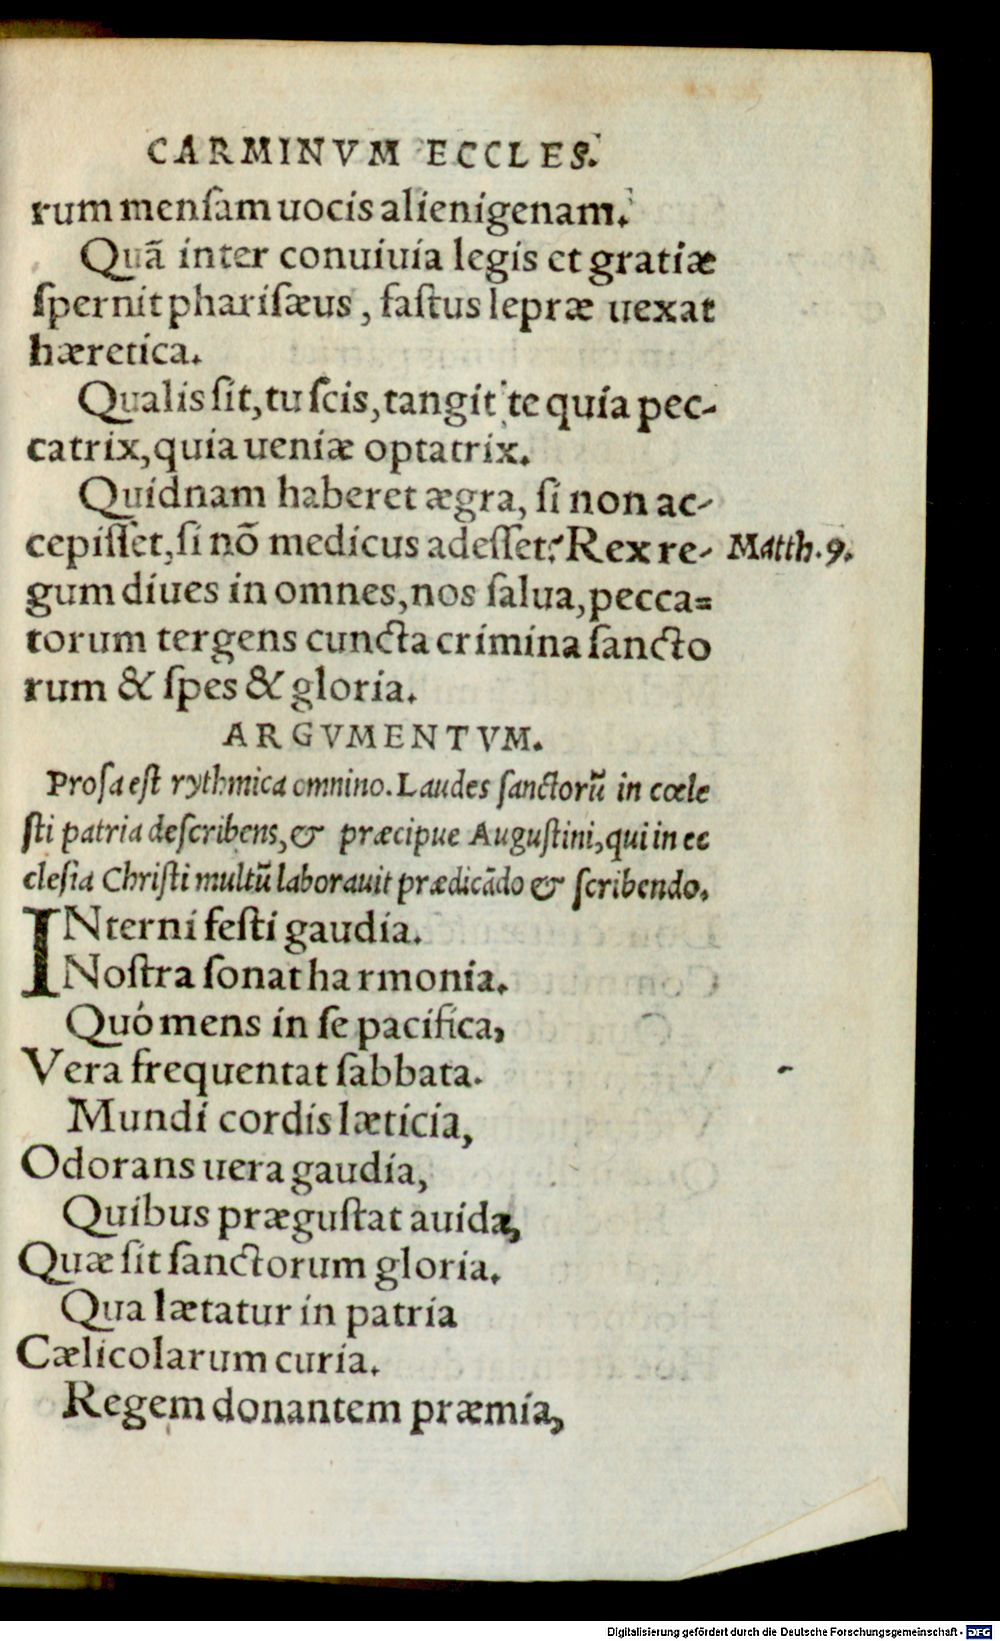 CARMINVM ECCLES.
rum menſam uocis alienigenam.
Quã inter conuiuia legis et gratiæ
ſpernit phariſæus, faſtus lepræ uexat
hæretica.
Qualis ſit, tu ſcis, tangit te quia pec-
catrix, quia ueniæ optatrix.
Quidnam haberet ægra, ſi non ac-
cepiſſet, ſi nõ medicus adeſſet? Rex re- Matth. 9.
gum diues in omnes, nos ſalua, pecca=
torum tergens cuncta crimina ſancto
rum & ſpes & gloria.
ARGVMENTVM.
Proſa eſt rythmica omnino. Laudes ſanctorũ in cœle
ſti patria deſcribens, & præcipue Auguſtini, qui in ec
cleſia Chriſti multũ laborauit prædicãdo & ſcribendo.
INterni feſti gaudia.
Noſtra ſonat ha rmonia.
Quò mens in ſe pacifica,
Vera frequentat ſabbata.
Mundi cordis læticia,
Odorans uera gaudia,
Quibus præguſtat auida,
Quæ ſit ſanctorum gloria.
Qua lætatur in patria
Cælicolarum curia.
Regem donantem præmia,
Digitalisierung gefördert durch die Deutsche Forschungsgemeinschaft - DFG